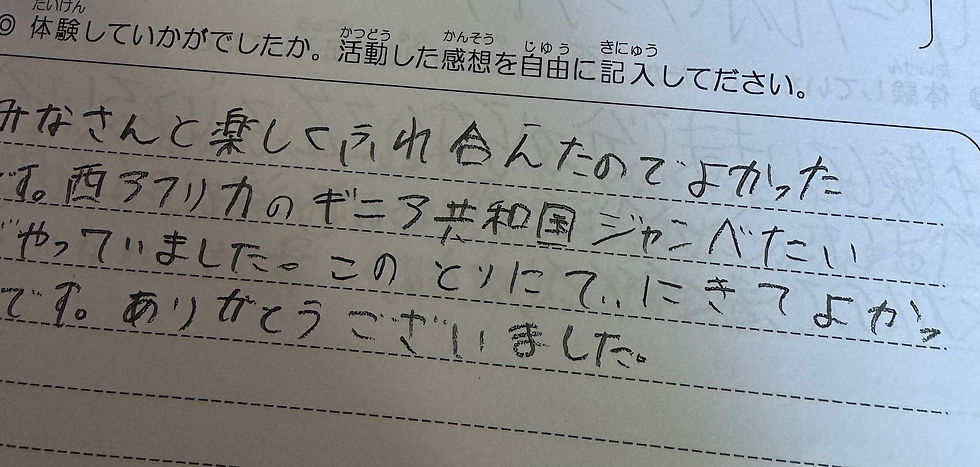 たいけん
◎ 体験していかがでしたか。活動した感想を自由に記入してださい。
かつどう かんそう じゆう きにゅう
みなさんと楽しくふれ合えたのでよかった
です。西アフリカのギニア共和国ジャンベたい
やっていました。この とりにてぃにきてよかっ
です。ありがとうございました。